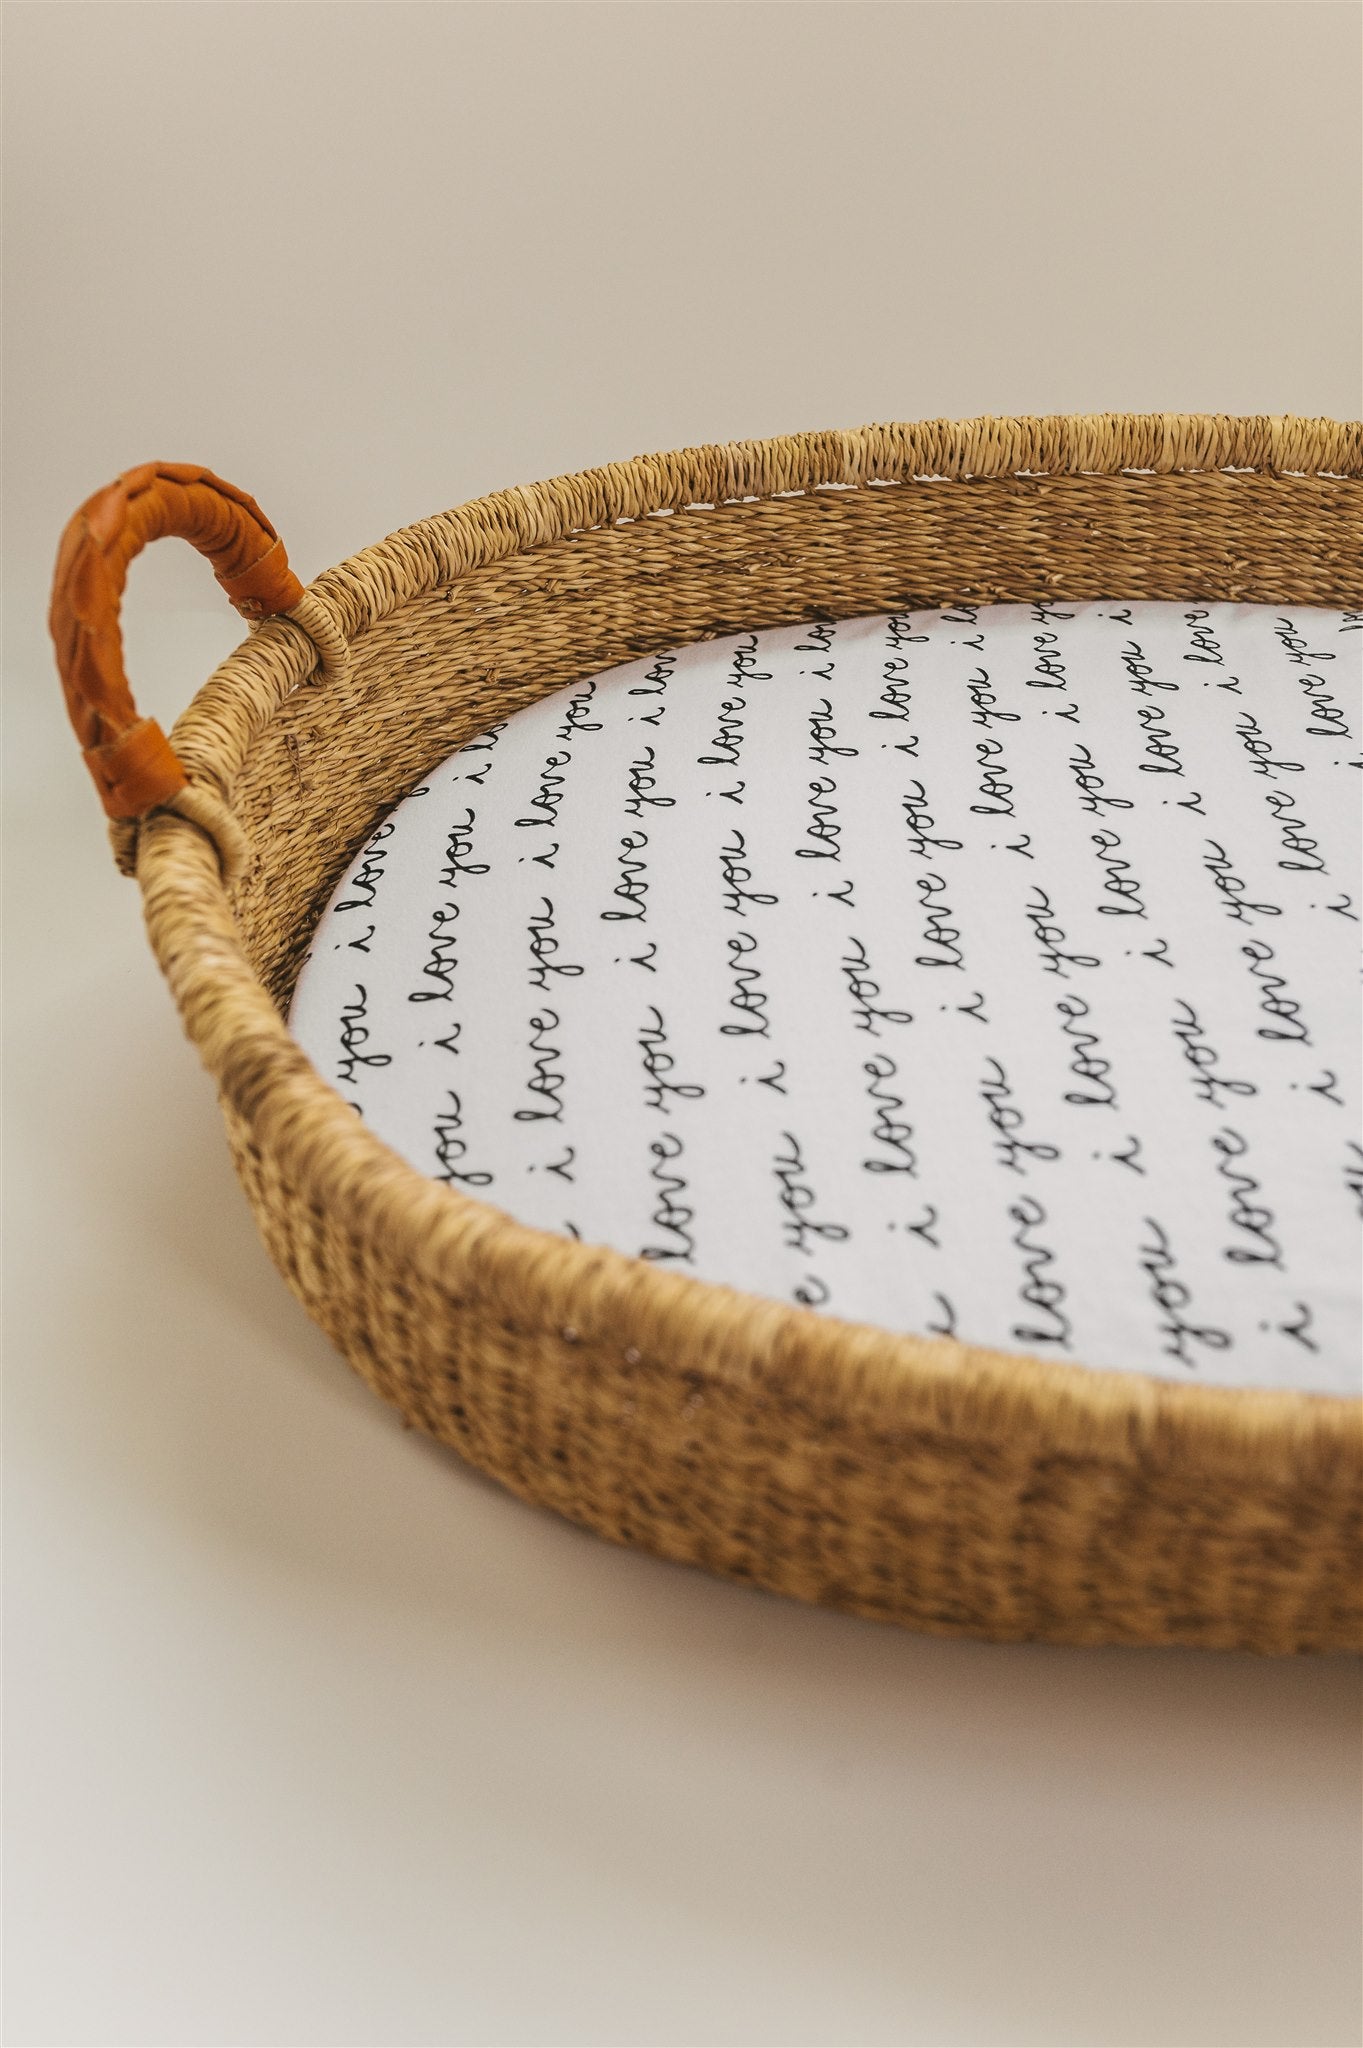 you i love
you i love you i lo
i love you i love you
love you i love you i lov
e you i love you i love you
u i love you i love you i lov
love you i love you i love you
you i love you i love you i lo
i love you i love you i love y
i love you i love you i
i love you i love
love you